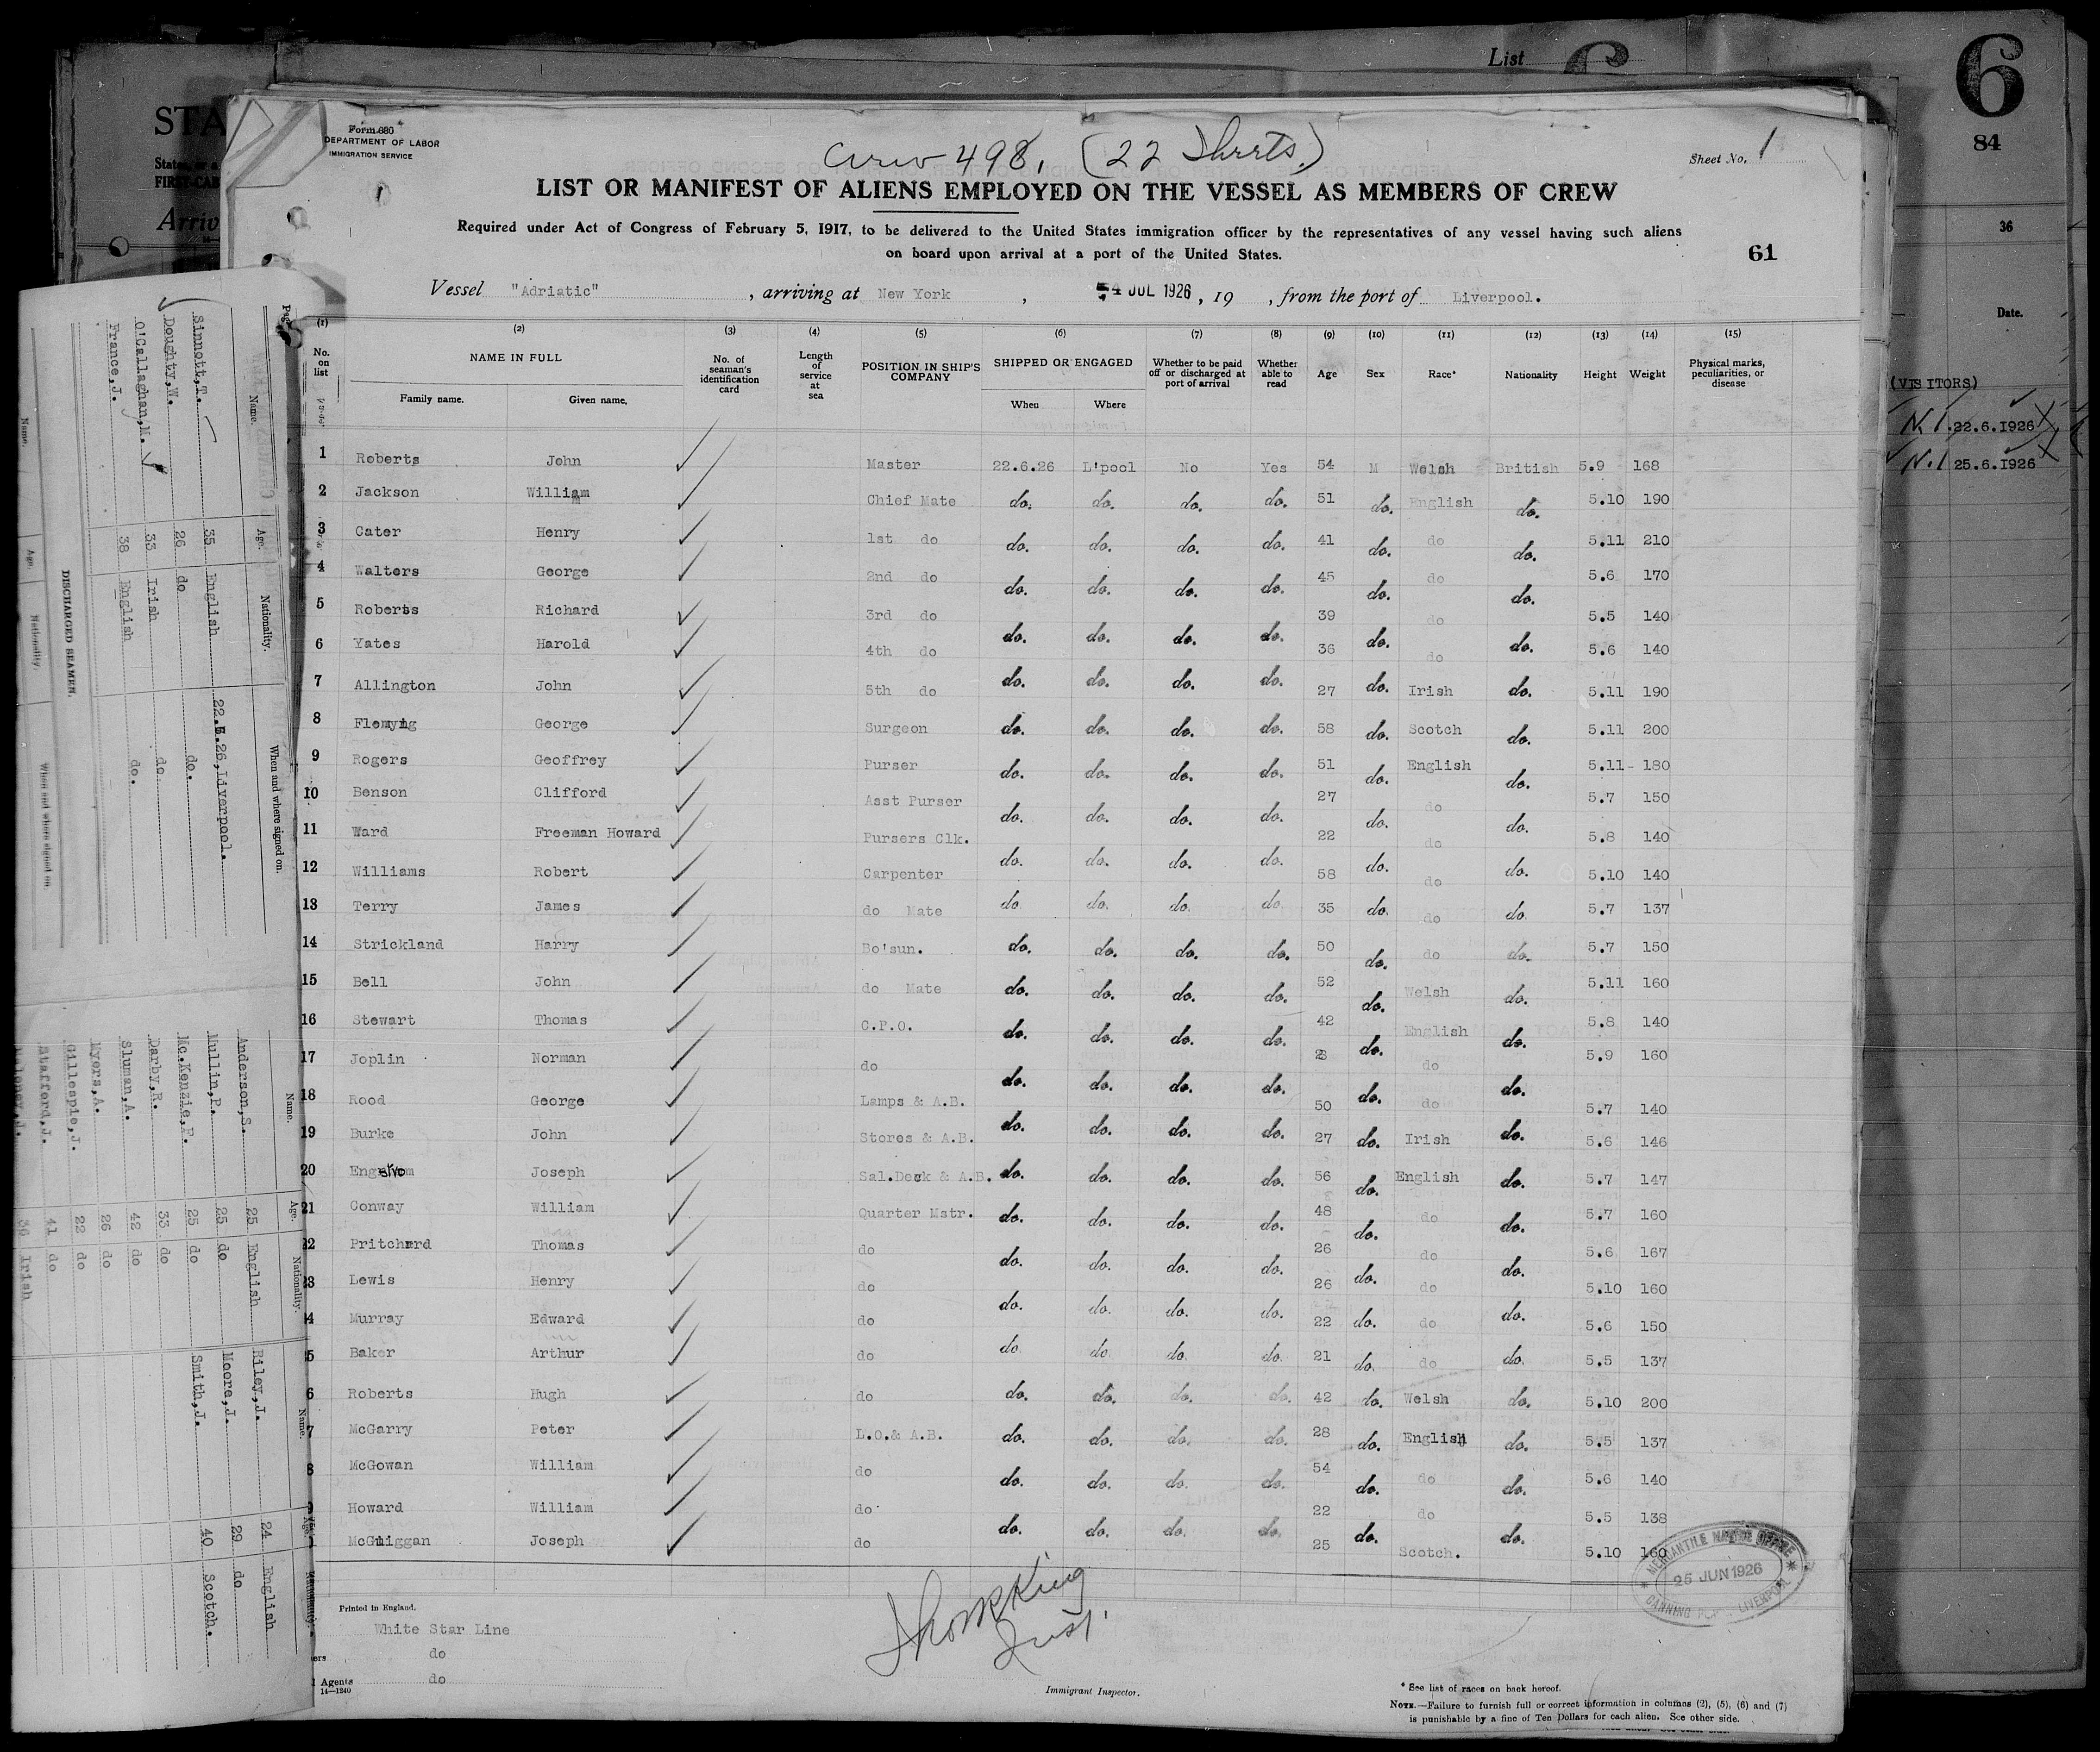 List
6
84
36
Date.
(VISITORS)
N.1. 22.6.1926
N.1 25.6.1926
STA
FIRST-CAB
Arriv
Form 680
DEPARTMENT OF LABOR
IMMIGRATION SERVICE
Crew 498. (22 Sheets.)
Sheet No. 1
LIST OR MANIFEST OF ALIENS EMPLOYED ON THE VESSEL AS MEMBERS OF CREW
Required under Act of Congress of February 5, 1917, to be delivered to the United States immigration officer by the representatives of any vessel having such aliens
on board upon arrival at a port of the United States.
61
Vessel "Adriatic", arriving at New York, 4 JUL 1926, 19 , from the port of Liverpool.
(1) (2) (3) (4) (5) (6) (7) (8) (9) (10) (11) (12) (13) (14) (15)
No. on list NAME IN FULL No. of seaman's identification card Length of service at sea POSITION IN SHIP'S COMPANY SHIPPED OR ENGAGED Whether to be paid off or discharged at port of arrival Whether able to read Age Sex Race* Nationality Height Weight Physical marks, peculiarities, or disease
Family name. Given name. When Where
1 Roberts John Master 22.6.26 L'pool No Yes 54 M Welsh British 5.9 168
2 Jackson William Chief Mate do. do. do. do. 51 do. English do. 5.10 190
3 Cater Henry 1st do do. do. do. do. 41 do. do do. 5.11 210
4 Walters George 2nd do do. do. do. do. 45 do. do do. 5.6 170
5 Roberts Richard 3rd do do. do. do. do. 39 do. do do. 5.5 140
6 Yates Harold 4th do do. do. do. do. 36 do. do do. 5.6 140
7 Allington John 5th do do. do. do. do. 27 do. Irish do. 5.11 190
8 Fleming George Surgeon do. do. do. do. 58 do. Scotch do. 5.11 200
9 Rogers Geoffrey Purser do. do. do. do. 51 do. English do. 5.11- 180
10 Benson Clifford Asst Purser do. do. do. do. 27 do. do do. 5.7 150
11 Ward Freeman Howard Pursers Clk. do. do. do. do. 22 do. do do. 5.8 140
12 Williams Robert Carpenter do. do. do. do. 58 do. do do. 5.10 140
13 Terry James do Mate do. do. do. do. 35 do. do do. 5.7 137
14 Strickland Harry Bo'sun. do. do. do. do. 50 do. do do. 5.7 150
15 Bell John do Mate do. do. do. do. 52 do. Welsh do. 5.11 160
16 Stewart Thomas C.P.O. do. do. do. do. 42 do. English do. 5.8 140
17 Joplin Norman do do. do. do. do. do. do do. 5.9 160
18 Rood George Lamps & A.B. do. do. do. do. 50 do. do do. 5.7 140
19 Burke John Stores & A.B. do. do. do. do. 27 do. Irish do. 5.6 146
20 Joseph Sal.Deck & A.B. do. do. do. do. 56 do. English do. 5.7 147
21 Conway William Quarter Mstr. do. do. do. do. 48 do. do do. 5.7 160
22 Pritchard Thomas do do. do. do. do. 26 do. do do. 5.6 167
23 Lewis Henry do do. do. do. do. 26 do. do do. 5.10 160
4 Murray Edward do do. do. do. do. 22 do. do do. 5.6 150
5 Baker Arthur do do. do. do. do. 21 do. do do. 5.5 137
6 Roberts Hugh do do. do. do. do. 42 do. Welsh do. 5.10 200
7 McGarry Peter L.O.& A.B. do. do. do. do. 28 do. English do. 5.5 137
8 McGowan William do do. do. do. do. 54 do. do do. 5.6 140
Howard William do 22 do 5.5 138
McGuiggan Joseph do do. do. do. do. 25 do. Scotch. do. 5.10 160
MERCANTILE MARINE OFFICE
26 JUN 1926
CANNING PLACE LIVERPOOL
Printed in England.
White Star Line
do
Agents do
14-1240
Immigrant Inspector.
* See list of races on back hereof.
NOTE.—Failure to furnish full or correct information in columns (2), (5), (6) and (7)
is punishable by a fine of Ten Dollars for each alien. See other side.
Name. Age. Nationality. When and where signed on.
Sinnott,T. 35 English 22.6.26,Liverpool.
Doughty,W. 26 do do.
O'Callaghan,M. 33 Irish do.
France,J. 38 English do.
DISCHARGED SEAMEN.
Name. Age. Nationality. When and where signed on.
Name. Age. Nationality. Name. Age.
Anderson,S. 25 English Riley,J. 24 English
Mullin,P. 25 do Moore,J. 29 do
Mc.Kenzie,F. 25 do Smith,J. 40 Scotch.
Darby,R. 33 do
Sluman,A. 42 do
Myers,A. 26 do
Gillespie,J. 22 do
Stafford,J. 41 do
36 Irish